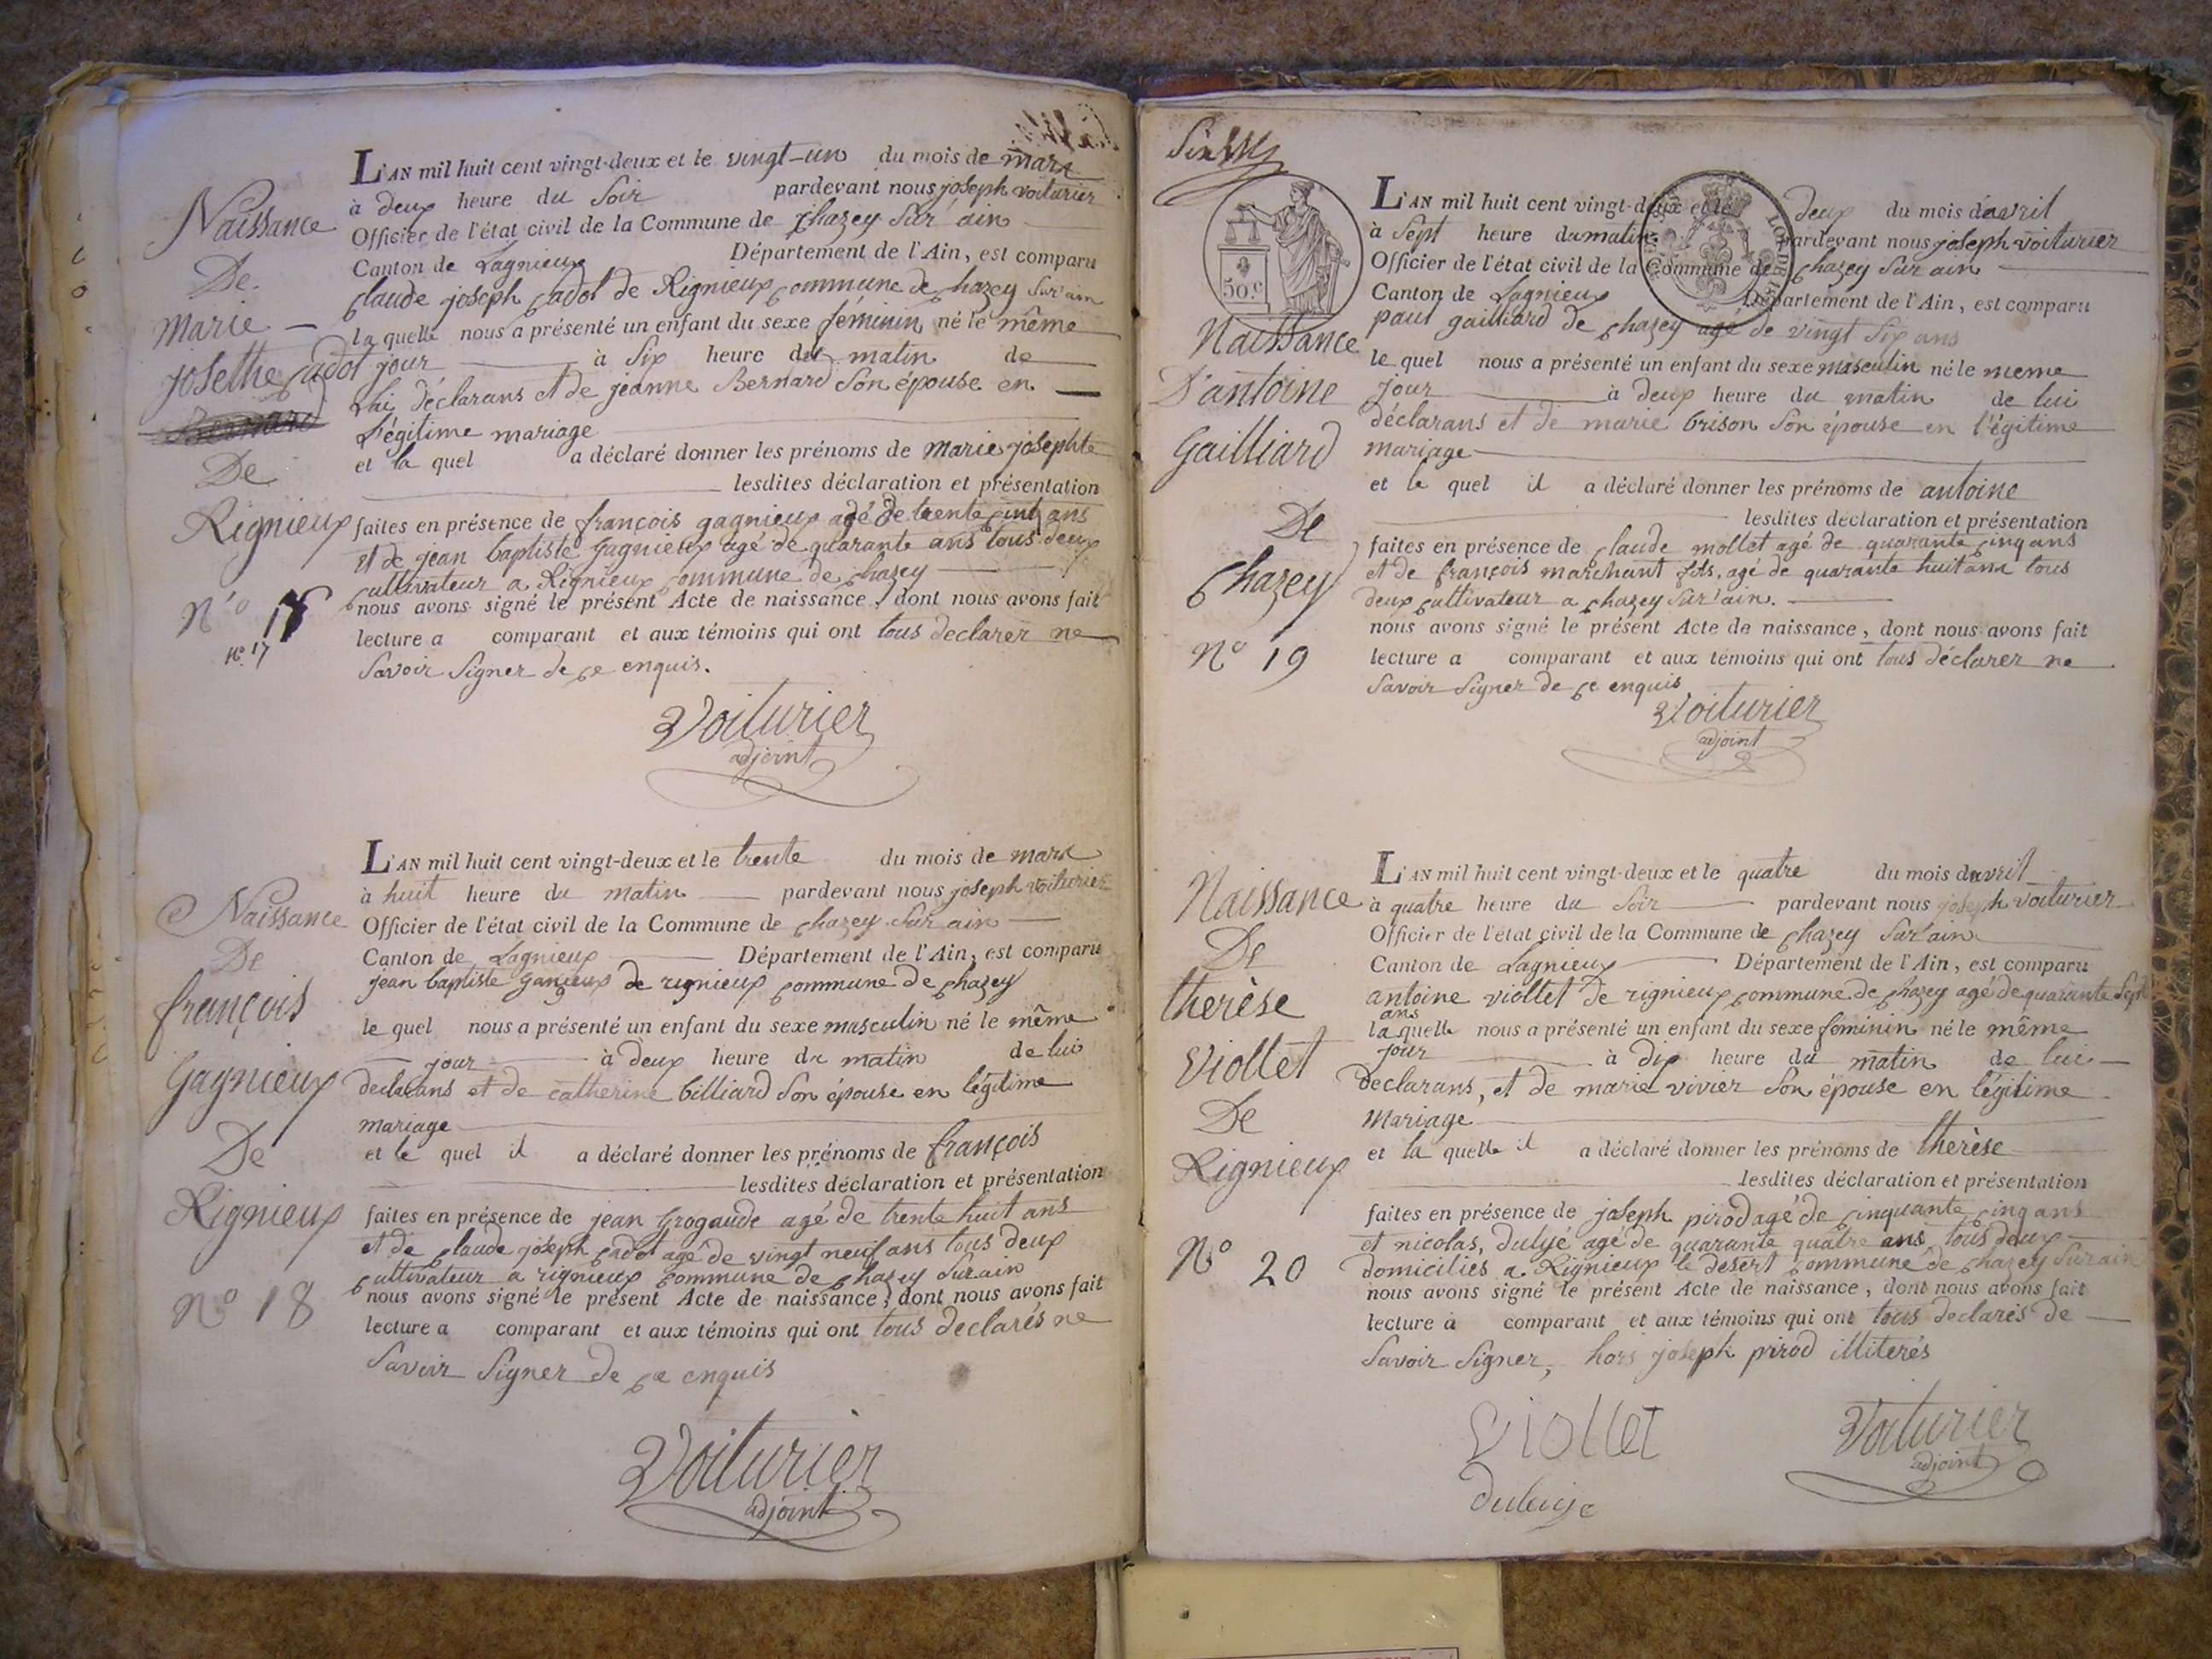 Naissance
De
marie
josethe Cadot
De
Rignieux
N.o 17
N.o 17
L'AN mil huit cent vingt-deux et le vingt-un du mois de mars
à deux heure du Soir pardevant nous joseph voiturier
Officier de l'état civil de la Commune de Chazey Sur ain
Canton de Lagnieux Département de l'Ain, est comparu
Claude joseph Cadot de Rignieux Commune de Chazey Sur ain
la quelle nous a présenté un enfant du sexe féminin né le même
jour à Six heure du matin de
Lui déclarans et de jeanne Bernard Son épouse en
Légitime mariage
et la quel a déclaré donner les prénoms de marie josephte
lesdites déclaration et présentation
faites en présence de françois gagnieux agé de trente Cinq ans
et de jean baptiste Gagnieux agé de quarante ans tous deux
Cultivateur a Rignieux Commune de Chazey
nous avons signé le présent Acte de naissance, dont nous avons fait
lecture a comparant et aux témoins qui ont tous déclarer ne
Savoir Signer de Ce enquis.
Voiturier
adjoint
Naissance
De
françois
Gagnieux
De
Rignieux
N.o 18
L'AN mil huit cent vingt-deux et le trente du mois de mars
à huit heure du matin pardevant nous joseph voiturier
Officier de l'état civil de la Commune de Chazey Sur ain
Canton de Lagnieux Département de l'Ain, est comparu
jean baptiste Gagnieux de rignieux Commune de Chazey
le quel nous a présenté un enfant du sexe masculin né le même
jour à deux heure du matin de lui
declarans et de catherine billiard Son épouse en légitime
mariage
et le quel il a déclaré donner les prénoms de françois
lesdites déclaration et présentation
faites en présence de jean Grogaude agé de trente huit ans
et de Claude joseph Cadot agé de vingt neuf ans tous deux
Cultivateur a rignieux Commune de Chazey Sur ain
nous avons signé le présent Acte de naissance, dont nous avons fait
lecture a comparant et aux témoins qui ont tous declarés ne
Savoir Signer de Ce enquis
Voiturier
adjoint
Six
50.c
Naissance
D'antoine
Gailliard
De
Chazey
N.o 19
L'AN mil huit cent vingt-deux et le deux du mois davril
à Sept heure du matin pardevant nous joseph voiturier
Officier de l'état civil de la Commune de Chazey Sur ain
Canton de Lagnieux Département de l'Ain, est comparu
paul gailliard de Chazey agé de vingt Six ans
le quel nous a présenté un enfant du sexe masculin né le meme
jour à deux heure du matin de lui
déclarans et de marie brison Son épouse en l'égitime
mariage
et le quel il a déclaré donner les prénoms de antoine
lesdites déclaration et présentation
faites en présence de Claude mollet agé de quarante Cinq ans
et de françois marchant fils, agé de quarante huit ans tous
deux Cultivateur a Chazey Sur ain.
nous avons signé le présent Acte de naissance, dont nous avons fait
lecture a comparant et aux témoins qui ont tous déclarer ne
Savoir Signer de Ce enquis
Voiturier
adjoint
Naissance
De
therèse
Viollet
De
Rignieux
N.o 20
L'AN mil huit cent vingt-deux et le quatre du mois davril
à quatre heure du Soir pardevant nous joseph voiturier
Officier de l'état civil de la Commune de Chazey Sur ain
Canton de Lagnieux Département de l'Ain, est comparu
antoine viollet de rignieux Commune de Chazey agé de quarante Sept
ans
la quelle nous a présenté un enfant du sexe féminin né le même
jour à dix heure du matin de lui
declarans, et de marie vivier Son épouse en légitime
mariage
et la quelle il a déclaré donner les prénoms de therèse
lesdites déclaration et présentation
faites en présence de joseph pirod agé de Cinquante Cinq ans
et nicolas, dulyé agé de quarante quatre ans tous deux
domiciliés a Rignieux le desert Commune de Chazey Sur ain
nous avons signé le présent Acte de naissance, dont nous avons fait
lecture à comparant et aux témoins qui ont tous declarés de
Savoir Signer, hors joseph pirod illiterés
Viollet
Voiturier
adjoint